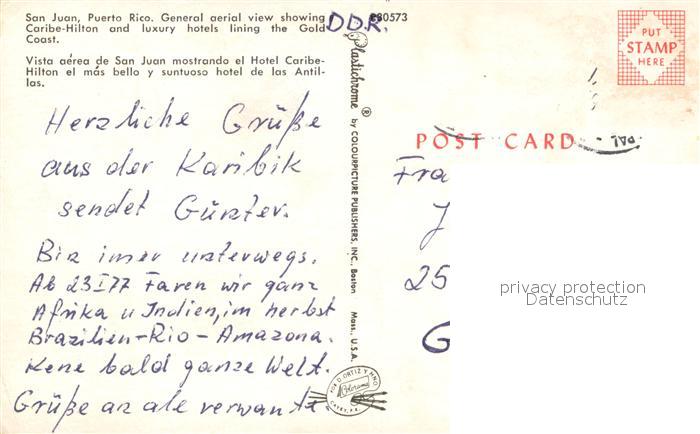 San Juan, Puerto Rico. General aerial view showing
Caribe-Hilton and luxury hotels lining the Gold
Coast.
Vista aérea de San Juan mostrando el Hotel Caribe-
Hilton el más bello y suntuoso hotel de las Antil-
las.
DDR.
Herzliche Grüße
aus der Karibik
sendet Günter.
Bin imer unterwegs.
Ab 23 I 77 Faren wir ganz
Afrika u Indien, im herbst
Brazilien-Rio-Amazona.
Kene bald ganze Welt.
Grüße an ale verwante
Plastichrome ® by COLOURPICTURE PUBLISHERS, INC., Boston Mass., U.S.A.
PUT
STAMP
HERE
POST CARD
Fra
25
G
privacy protection
Datenschutz